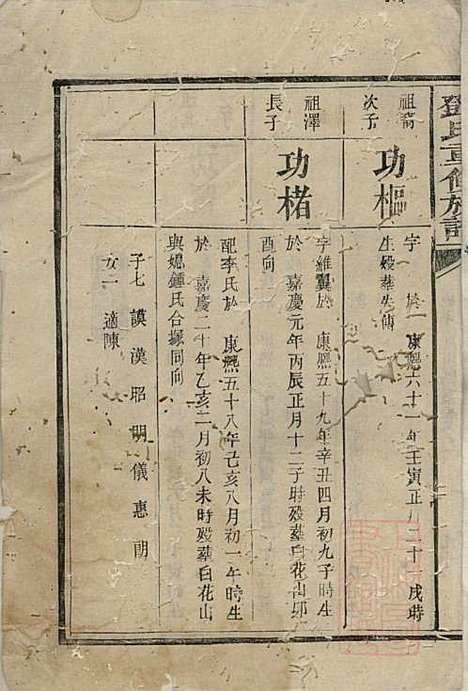 鄧氏重修族譜
祖裔
次子
功樞
字 於 康熙六十一年壬寅正月二十 戌時
生殁葬失傳
祖澤
長子
功楮
字維翼於 康熙五十九年辛丑四月初九子時生
於 嘉慶元年丙辰正月十二子時殁葬白花山卯
酉向
配李氏於 康熙五十八年己亥八月初一午時生
於 嘉慶二十年乙亥二月初八未時殁葬白花山
與媳鍾氏合塚同向
子七 謨漢昭明儀惠朗
女一 適陳